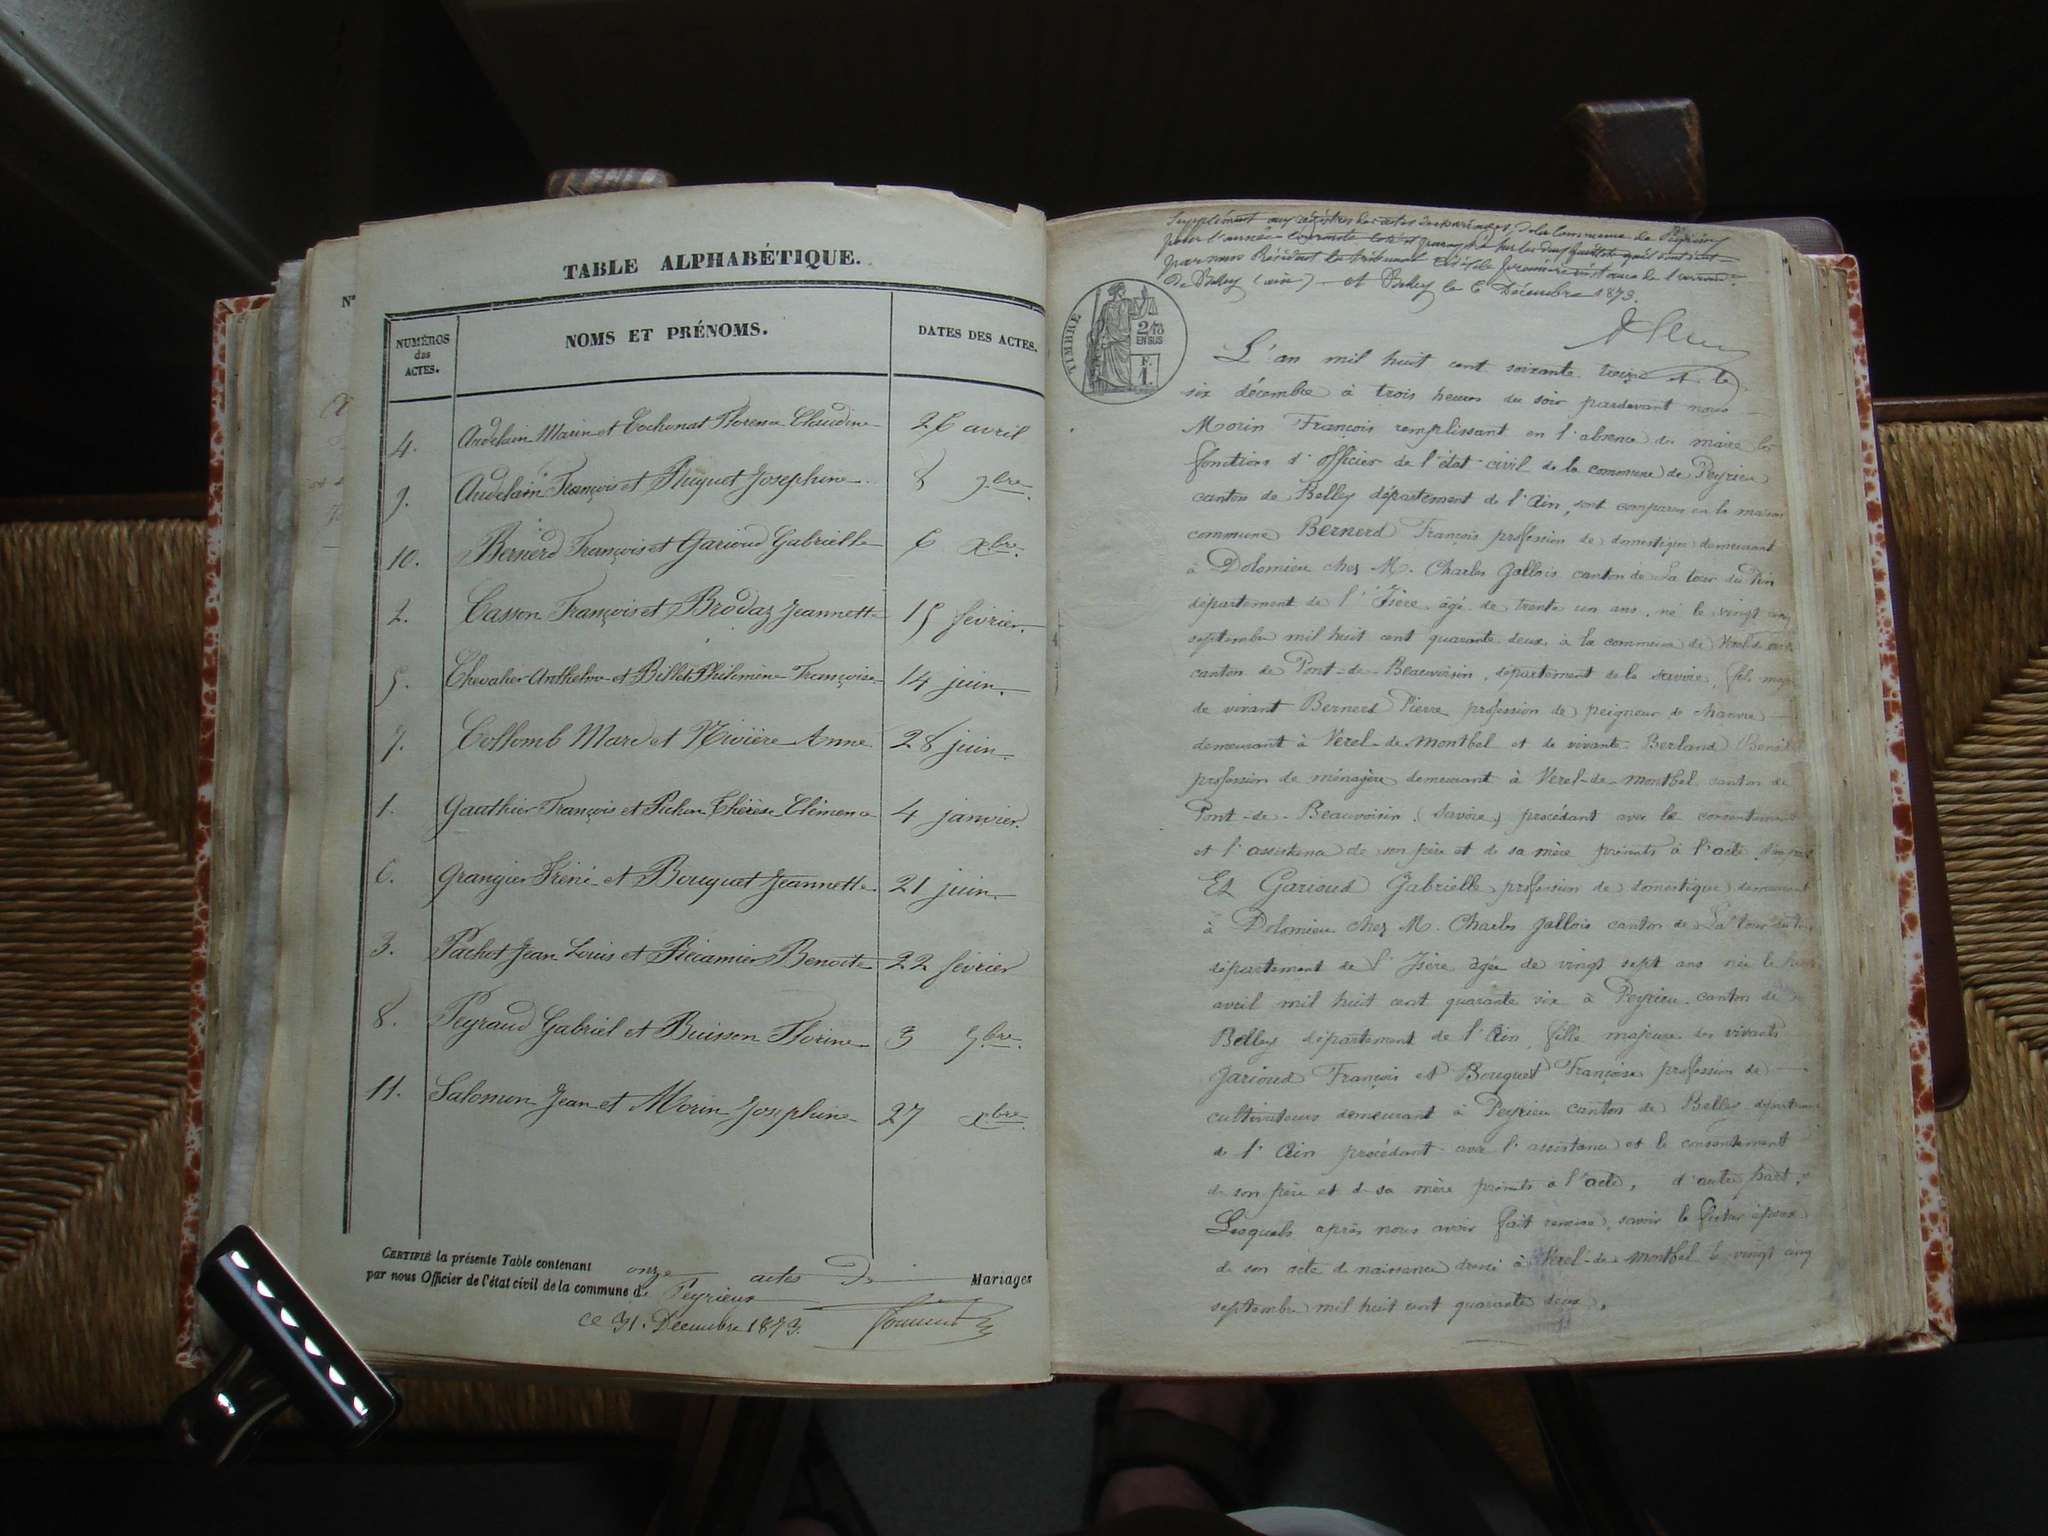 TABLE ALPHABÉTIQUE.
NUMÉROS des ACTES. NOMS ET PRÉNOMS. DATES DES ACTES.
4. Audelain Marin et Cochonat Florence Claudine 26 avril
9. Audelain François et Huguet Josephine 8 9.bre
10. Bernerd François et Garioud Gabrielle 6 Xbre.
2. Casson François et Brodaz Jeannette 15 février.
5. Chevalier Anthelme et Billet Philomène Françoise 14 juin.
7. Collomb Marc et Rivière Anne 28 juin.
1. Gauthier François et Pichon Thérèse Clémence 4 janvier.
6. Grangier Iréné et Bouquet Jeannette 21 juin.
3. Pachot Jean Louis et Récamier Benoite 22 février
8. Peyraud Gabriel et Buisson Florine 3 9.bre.
11. Salomon Jean et Morin Josephine 27 Xbre.
CERTIFIÉ la présente Table contenant onze actes de Mariages
par nous Officier de l'état civil de la commune de Peyrieux
ce 31. Décembre 1873.
Supplément aux registres des actes de mariages, de la Commune de Peyrieu
pour l'année courante coté et paraphé sur les deux feuillets
par nous Président du tribunal civil de première instance de l'arrond.t
de Belley (ain) et Belley le 6 Décembre 1873.
TIMBRE
2/10
EN SUS
F.
1.
L'an mil huit cent soixante treize et le
six décembre à trois heures du soir pardevant nous
Morin François remplissant en l'absence du maire les
fonctions d'officier de l'état civil de la commune de Peyrieu
canton de Belley département de l'Ain, sont comparus en la maison
commune Bernerd François profession de domestique demeurant
à Dolomieu chez M. Charles Gallois canton de La tour du Pin
département de l'Isère âgé de trente un ans, né le vingt cinq
septembre mil huit cent quarante deux à la commune de Verel de
canton de Pont-de-Beauvoisin, département de la Savoie, fils
de vivant Bernerd Pierre profession de peigneur de chanvre
demeurant à Verel-de-Montbel et de vivante Berland
profession de ménagère demeurant à Verel-de-Montbel canton de
Pont-de-Beauvoisin (Savoie) procédant avec le consentement
et l'assistance de son père et de sa mère présents à l'acte
Et Garioud Gabrielle profession de domestique demeurant
à Dolomieu chez M. Charles Gallois canton de La tour du Pin
département de l'Isère âgée de vingt sept ans née le
avril mil huit cent quarante six à Peyrieu canton de
Belley département de l'Ain, fille majeure des vivants
Garioud François et Bouquet Françoise profession de
cultivateurs demeurant à Peyrieu canton de Belley département
de l'Ain procédant avec l'assistance et le consentement
de son père et de sa mère présents à l'acte, d'autre part.
Lesquels après nous avoir fait remise, savoir le futur époux
de son acte de naissance dressé à Verel-de-Montbel le vingt cinq
septembre mil huit cent quarante deux.